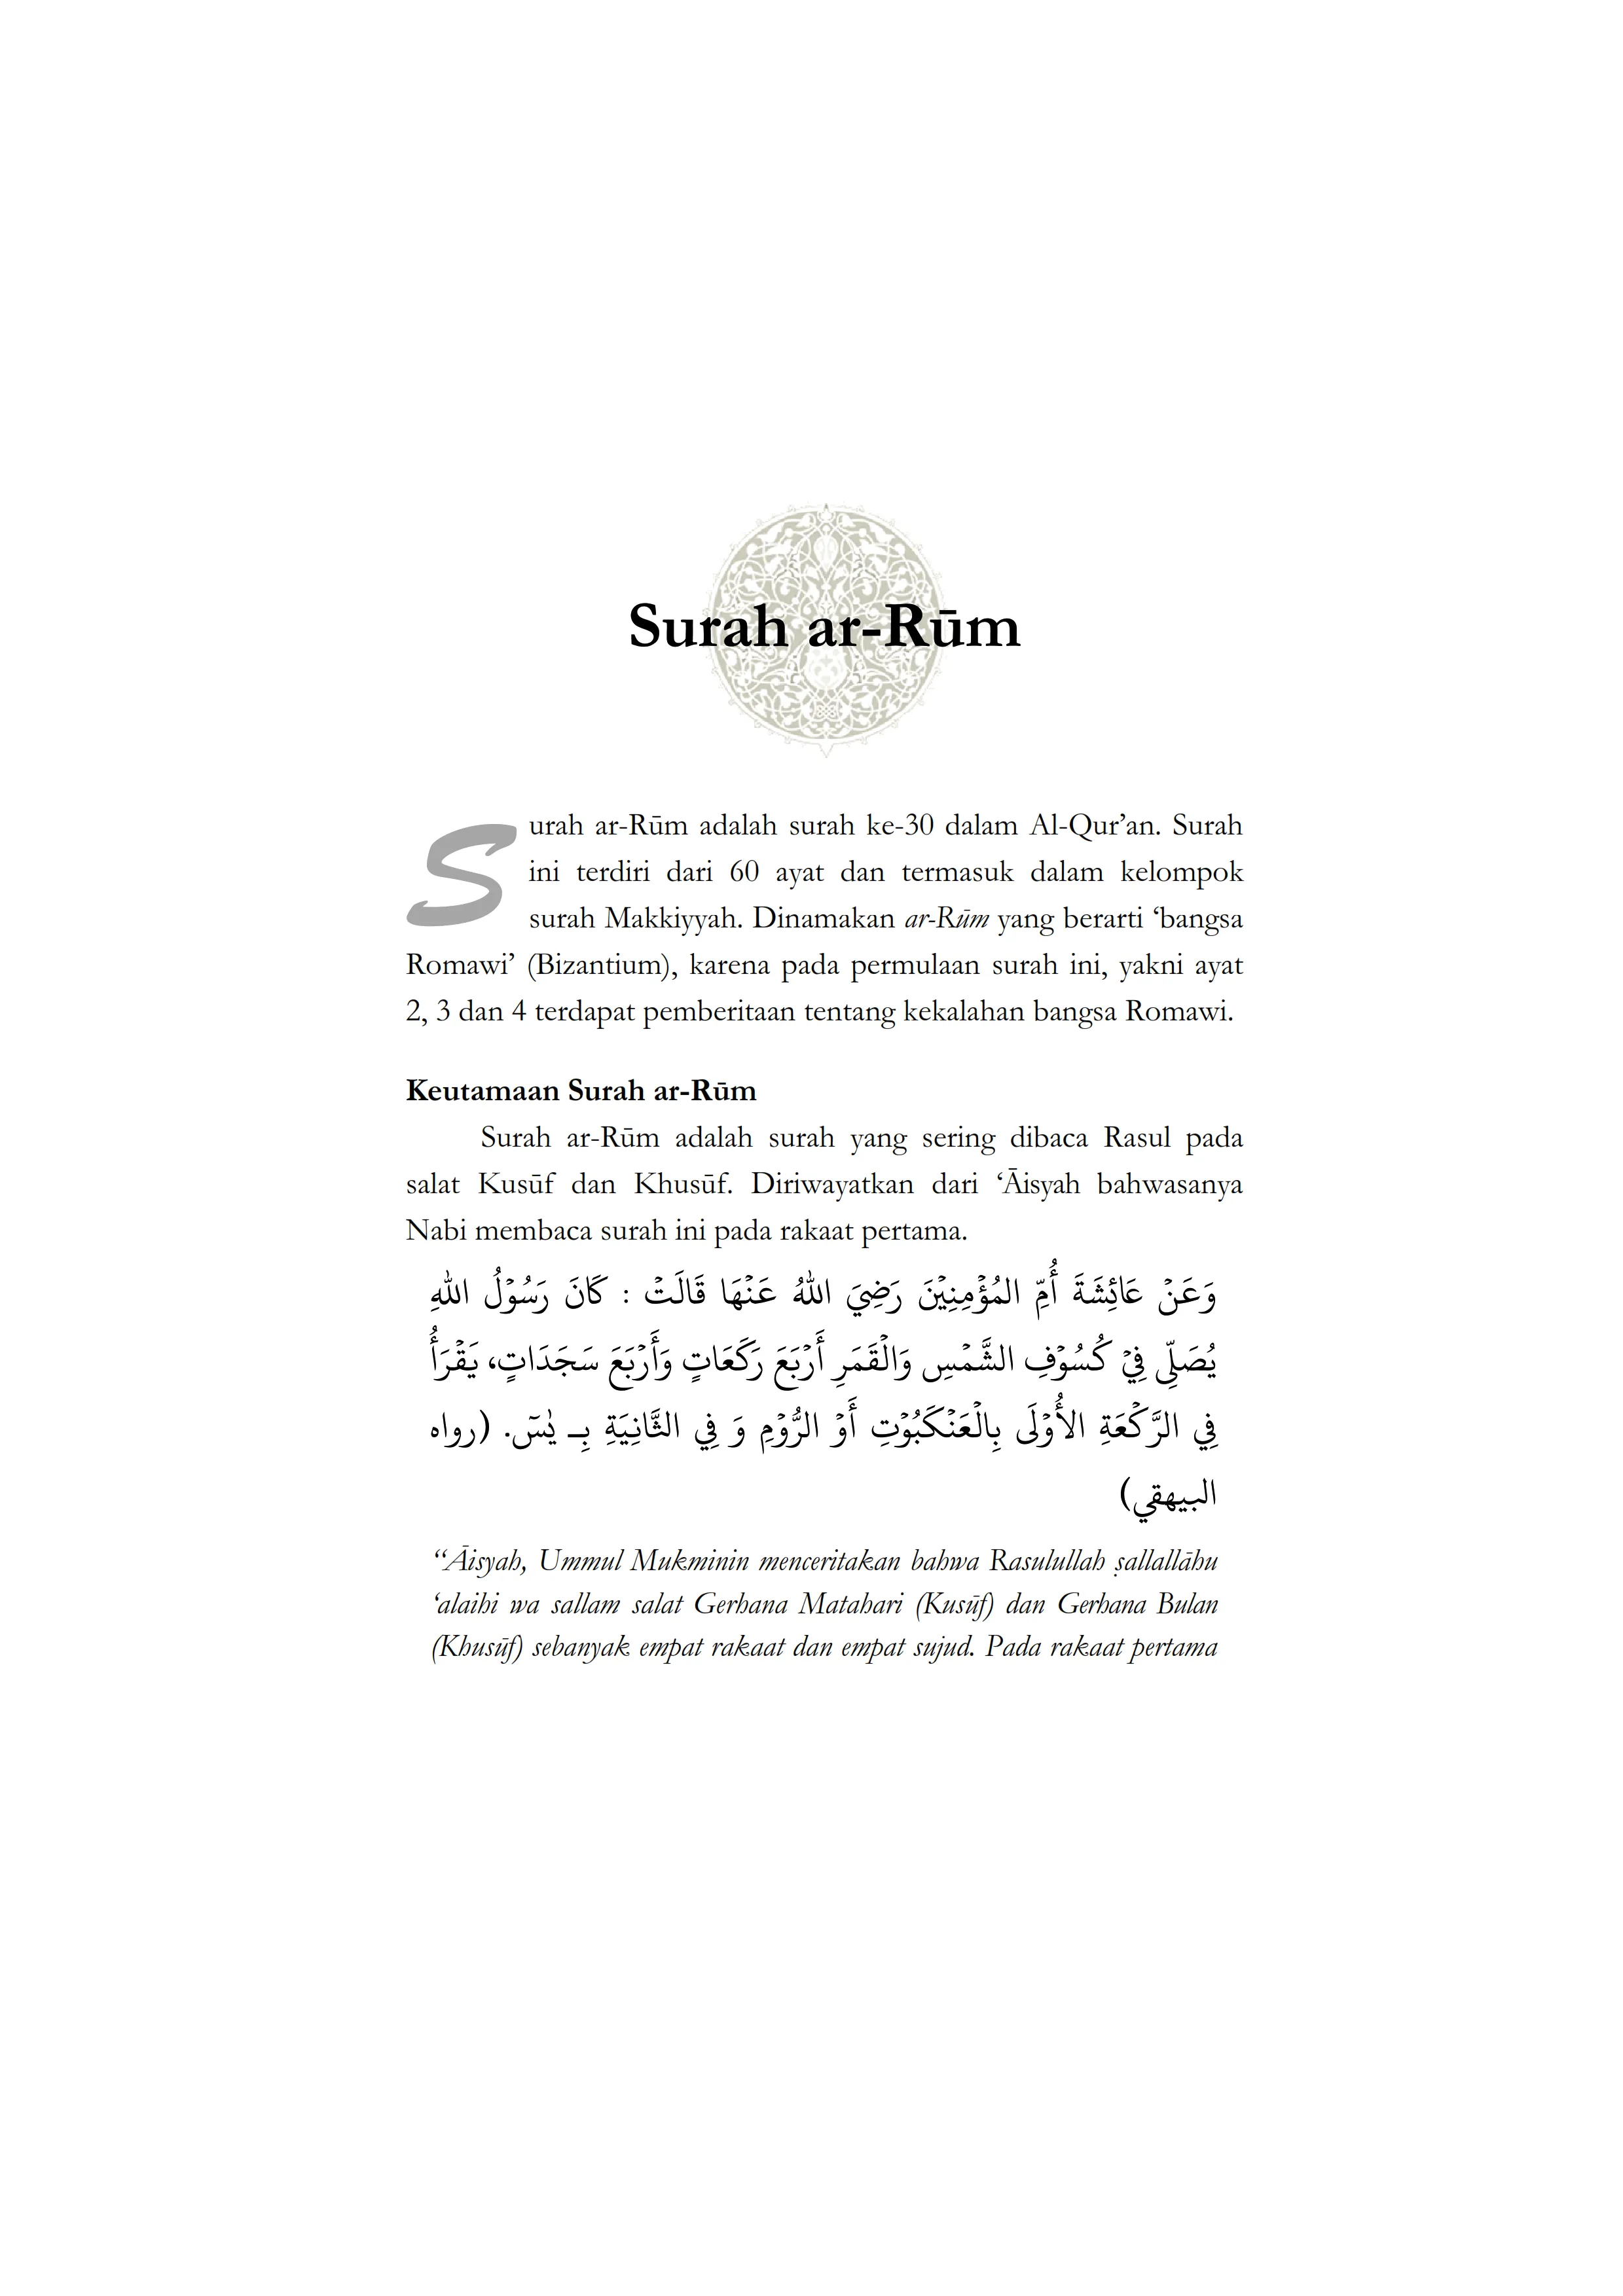 Surah ar-Rūm
Surah ar-Rūm adalah surah ke-30 dalam Al-Qur’an. Surah
ini terdiri dari 60 ayat dan termasuk dalam kelompok
surah Makkiyyah. Dinamakan ar-Rūm yang berarti ‘bangsa
Romawi’ (Bizantium), karena pada permulaan surah ini, yakni ayat
2, 3 dan 4 terdapat pemberitaan tentang kekalahan bangsa Romawi.
Keutamaan Surah ar-Rūm
Surah ar-Rūm adalah surah yang sering dibaca Rasul pada
salat Kusūf dan Khusūf. Diriwayatkan dari ‘Āisyah bahwasanya
Nabi membaca surah ini pada rakaat pertama.
وَعَنْ عَائِشَةَ أُمِّ المُؤْمِنِيْنَ رَضِيَ اللهُ عَنْهَا قَالَتْ : كَانَ رَسُوْلُ اللهِ
يُصَلِّى فِيْ كُسُوْفِ الشَّمْسِ وَالْقَمَرِ أَرْبَعَ رَكَعَاتٍ وَأَرْبَعَ سَجَدَاتٍ، يَقْرَأُ
فِي الرَّكْعَةِ الأُوْلَى بِالْعَنْكَبُوْتِ أَوْ الرُّوْمِ وَ فِي الثَّانِيَةِ بِـ يٰسٓ. (رواه
البيهقي)
“Āisyah, Ummul Mukminin menceritakan bahwa Rasulullah ṣallallāhu
‘alaihi wa sallam salat Gerhana Matahari (Kusūf) dan Gerhana Bulan
(Khusūf) sebanyak empat rakaat dan empat sujud. Pada rakaat pertama